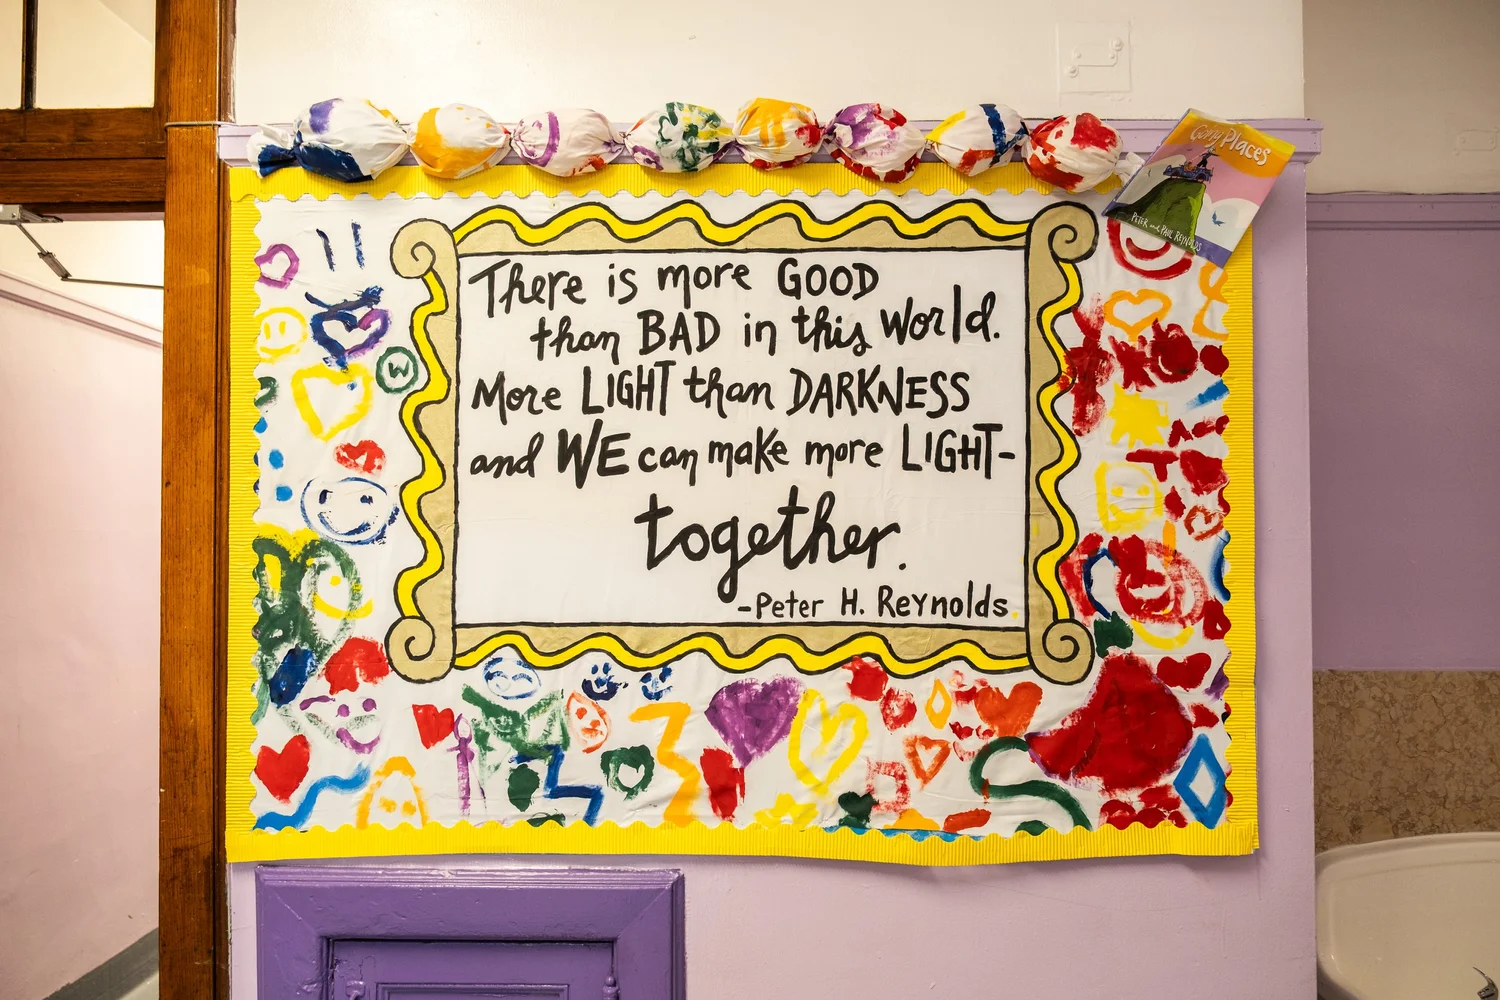 Going Places
PETER and PAUL REYNOLDS
There is more GOOD
than BAD in this World.
More LIGHT than DARKNESS
and WE can make more LIGHT-
together.
-Peter H. Reynolds
W